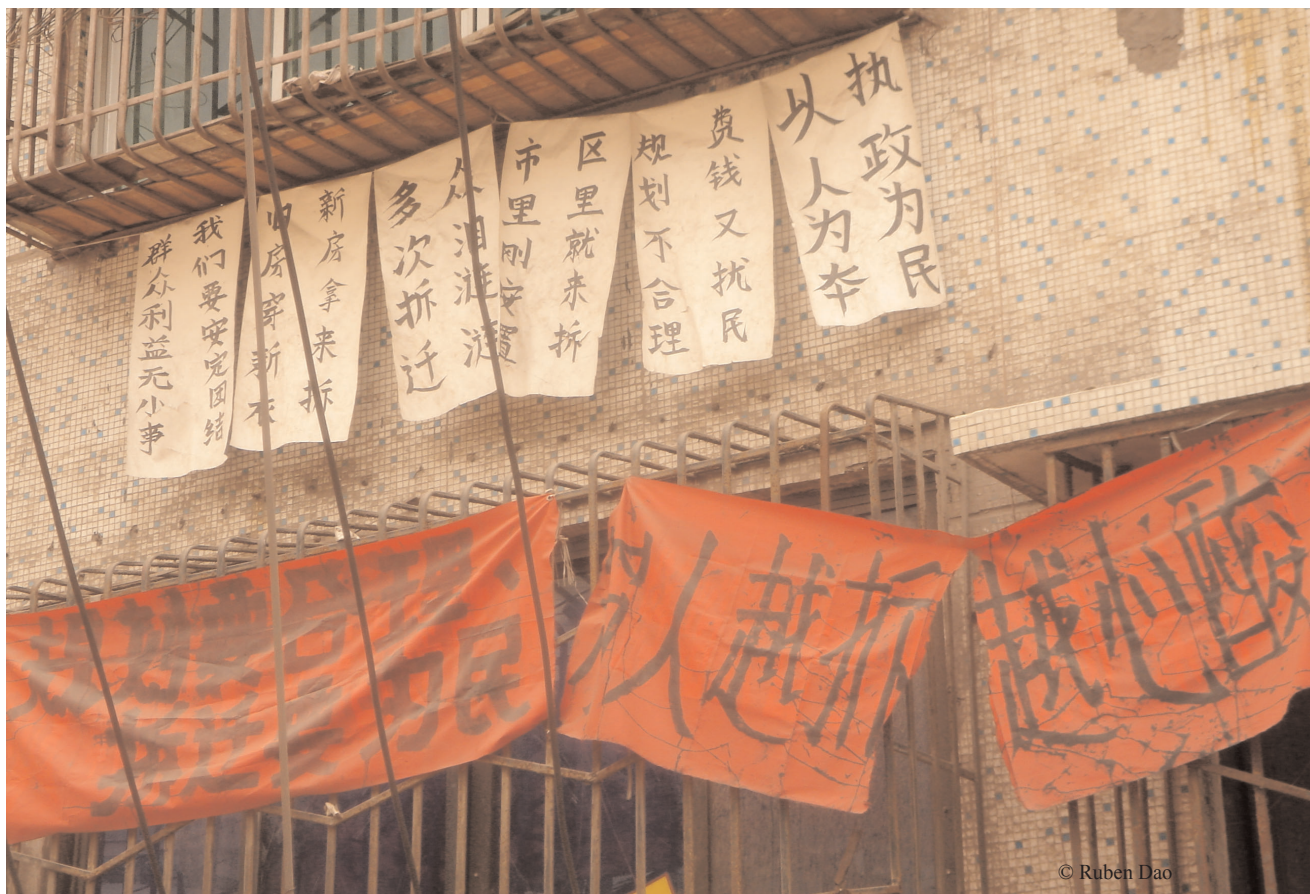 执政为民
以人为本
费钱又扰民
规划不合理
区里就来拆
市里刚安置
众泪涟涟
多次拆迁
新房拿来拆
旧房穿新衣
我们要安定团结
群众利益无小事
人越拆
越心酸
© Ruben Dao